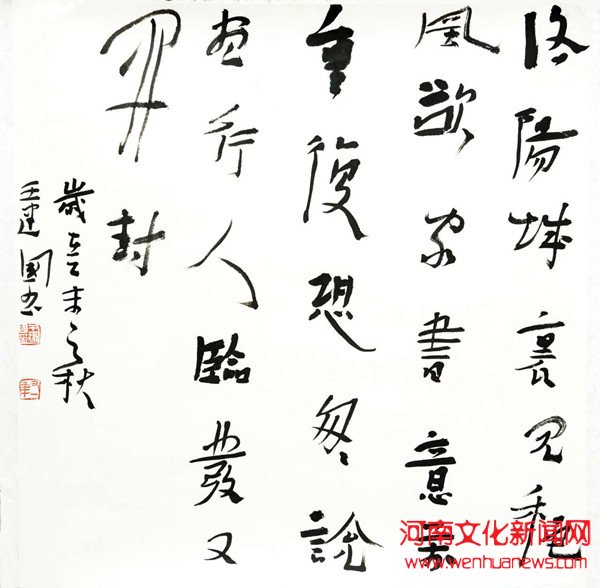 洛陽城裏見秋
風欲家書意萬
重復恐匆匆說
盡行人臨發又
開封
歲在乙未之秋
王建國書
河南文化新闻网
www.wenhuanews.com